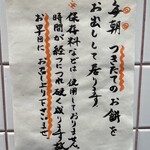 毎朝 つきたての お餅を
お出しして居ります
※保存料などは 使用しておりません
時間が経つにつれ 硬く成ります故
お早目に お召し上り下さいませ